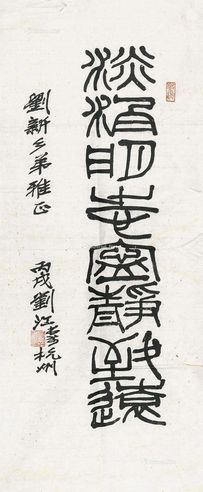 淡泊明志寧靜致遠
劉新三弟雅正
丙戌劉江書於杭州